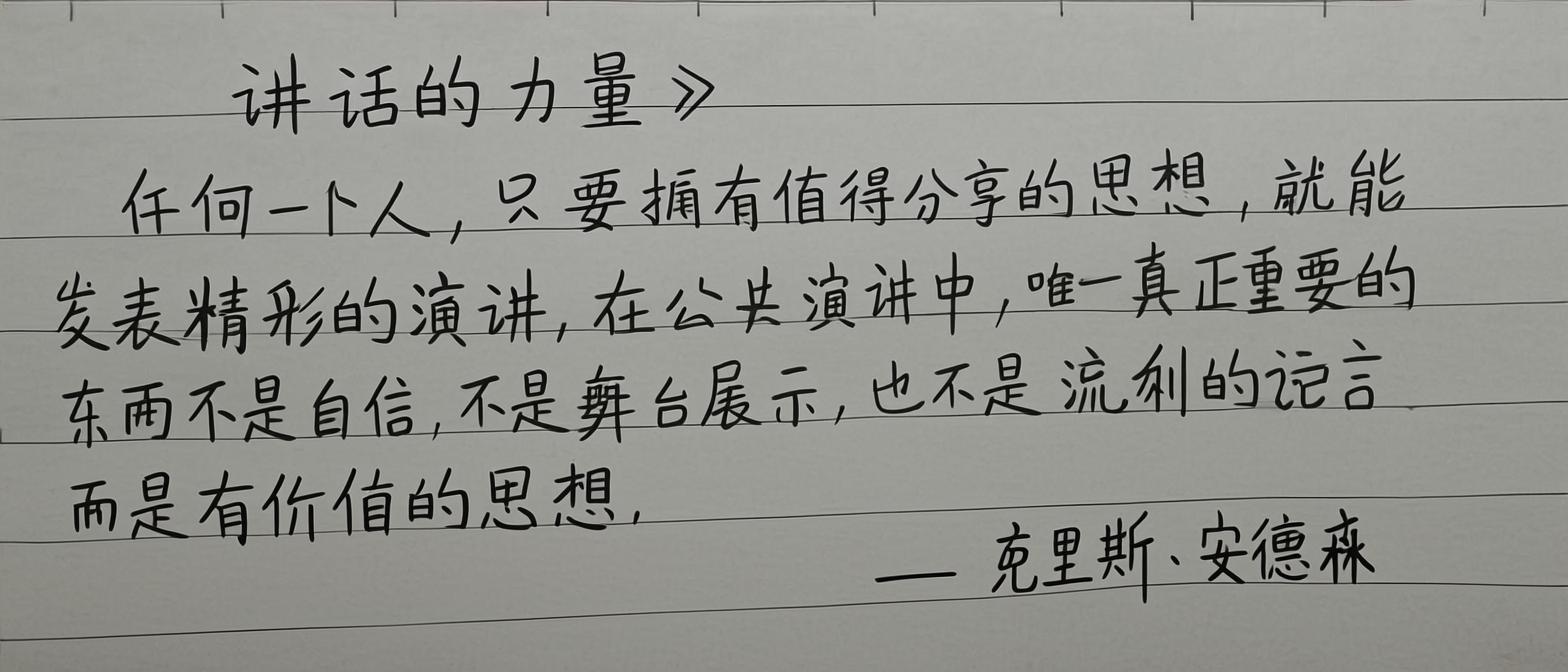 讲话的力量》
任何一个人，只要拥有值得分享的思想，就能
发表精形的演讲，在公共演讲中，唯一真正重要的
东西不是自信，不是舞台展示，也不是流利的论言
而是有价值的思想，
—— 克里斯、安德森